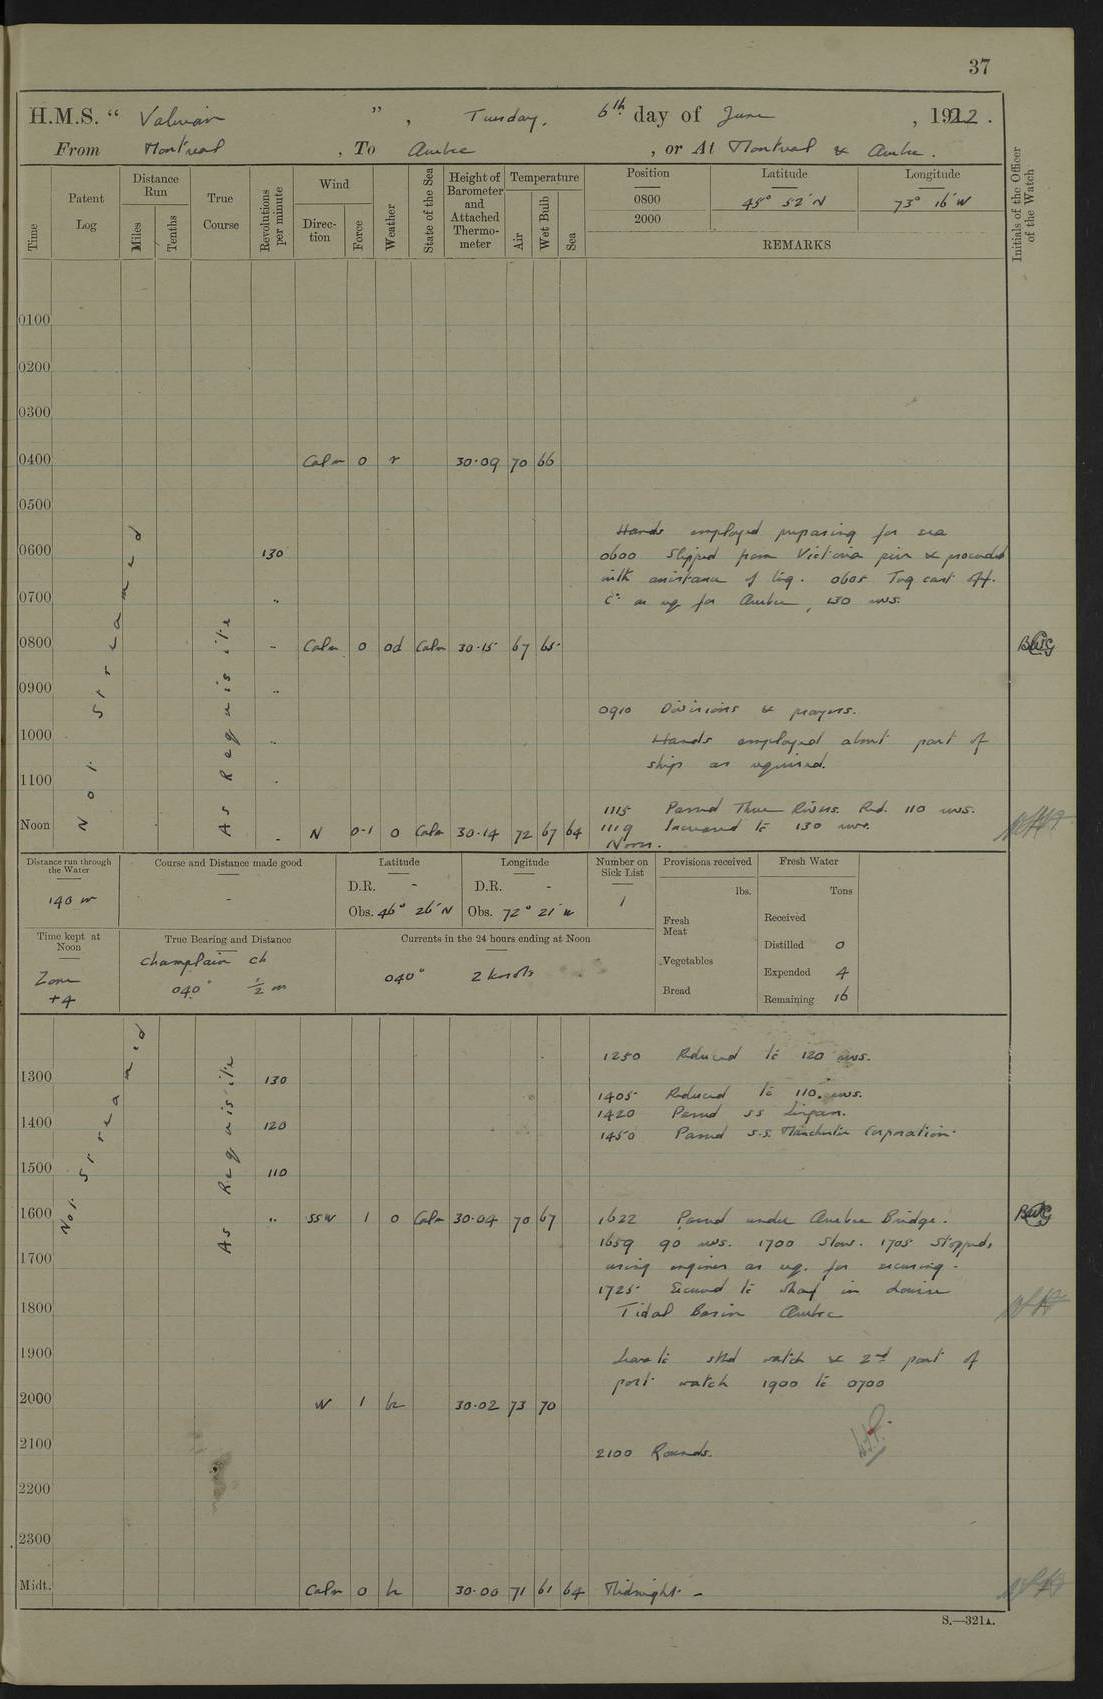 37
H.M.S. " Valerian ", Tuesday, 6th day of June, 1922.
From Montreal, To Quebec, or At Montreal & Quebec.
Time
Patent Log
Distance Run
Miles
Tenths
True Course
Revolutions per minute
Wind
Direction
Force
Weather
State of the Sea
Height of Barometer and Attached Thermometer
Temperature
Air
Wet Bulb
Sea
Position Latitude Longitude
0800 45° 52' N 73° 16' W
2000
REMARKS
Initials of the Officer of the Watch
0100
0200
0300
0400 Calm 0 r 30.09 70 66
0500
Hands employed preparing for sea
0600 130 0600 Slipped from Victoria pier & proceeded
with assistance of tug. 0605 Tug cast off.
0700 " Co as req for Quebec, 130 revs.
0800 " Calm 0 od Calm 30.15 67 65 BWG
0900 "
0910 Divisions & prayers.
1000 " Hands employed about part of
ship as required.
1100 "
1115 Passed Three Rivers. Red. 110 revs.
Noon " N 0-1 0 Calm 30.14 72 67 64 1119 Increased to 130 revs.
Noon.
Not Streamed
As Requisite
Distance run through the Water
140 m
Course and Distance made good
-
Latitude
D.R. -
Obs. 46° 26' N
Longitude
D.R. -
Obs. 72° 21' W
Number on Sick List
1
Provisions received
lbs.
Fresh Meat
Vegetables
Bread
Fresh Water
Tons
Received
Distilled 0
Expended 4
Remaining 16
Time kept at Noon
Zone
+4
True Bearing and Distance
Champlain Ch
040° ½ m
Currents in the 24 hours ending at Noon
040° 2 knots
1250 Reduced to 120 revs.
1300 130
1405 Reduced to 110 revs.
1420 Passed ss Lingan.
1400 120 1450 Passed s.s. Manchester Corporation.
1500 110
1600 " SSW 1 0 Calm 30.04 70 67 1622 Passed under Quebec Bridge. BWG
1659 90 revs. 1700 Slow. 1705 Stopped,
1700 using engines as req. for securing.
1725 Secured to wharf in Louise
1800 Tidal Basin Quebec
1900 Leave to stbd watch & 2nd part of
port watch 1900 to 0700
2000 W 1 bc 30.02 73 70
2100 2100 Rounds.
2200
2300
Midt. Calm 0 b 30.00 71 61 64 Midnight. -
Not Streamed
As Requisite
S.—321A.